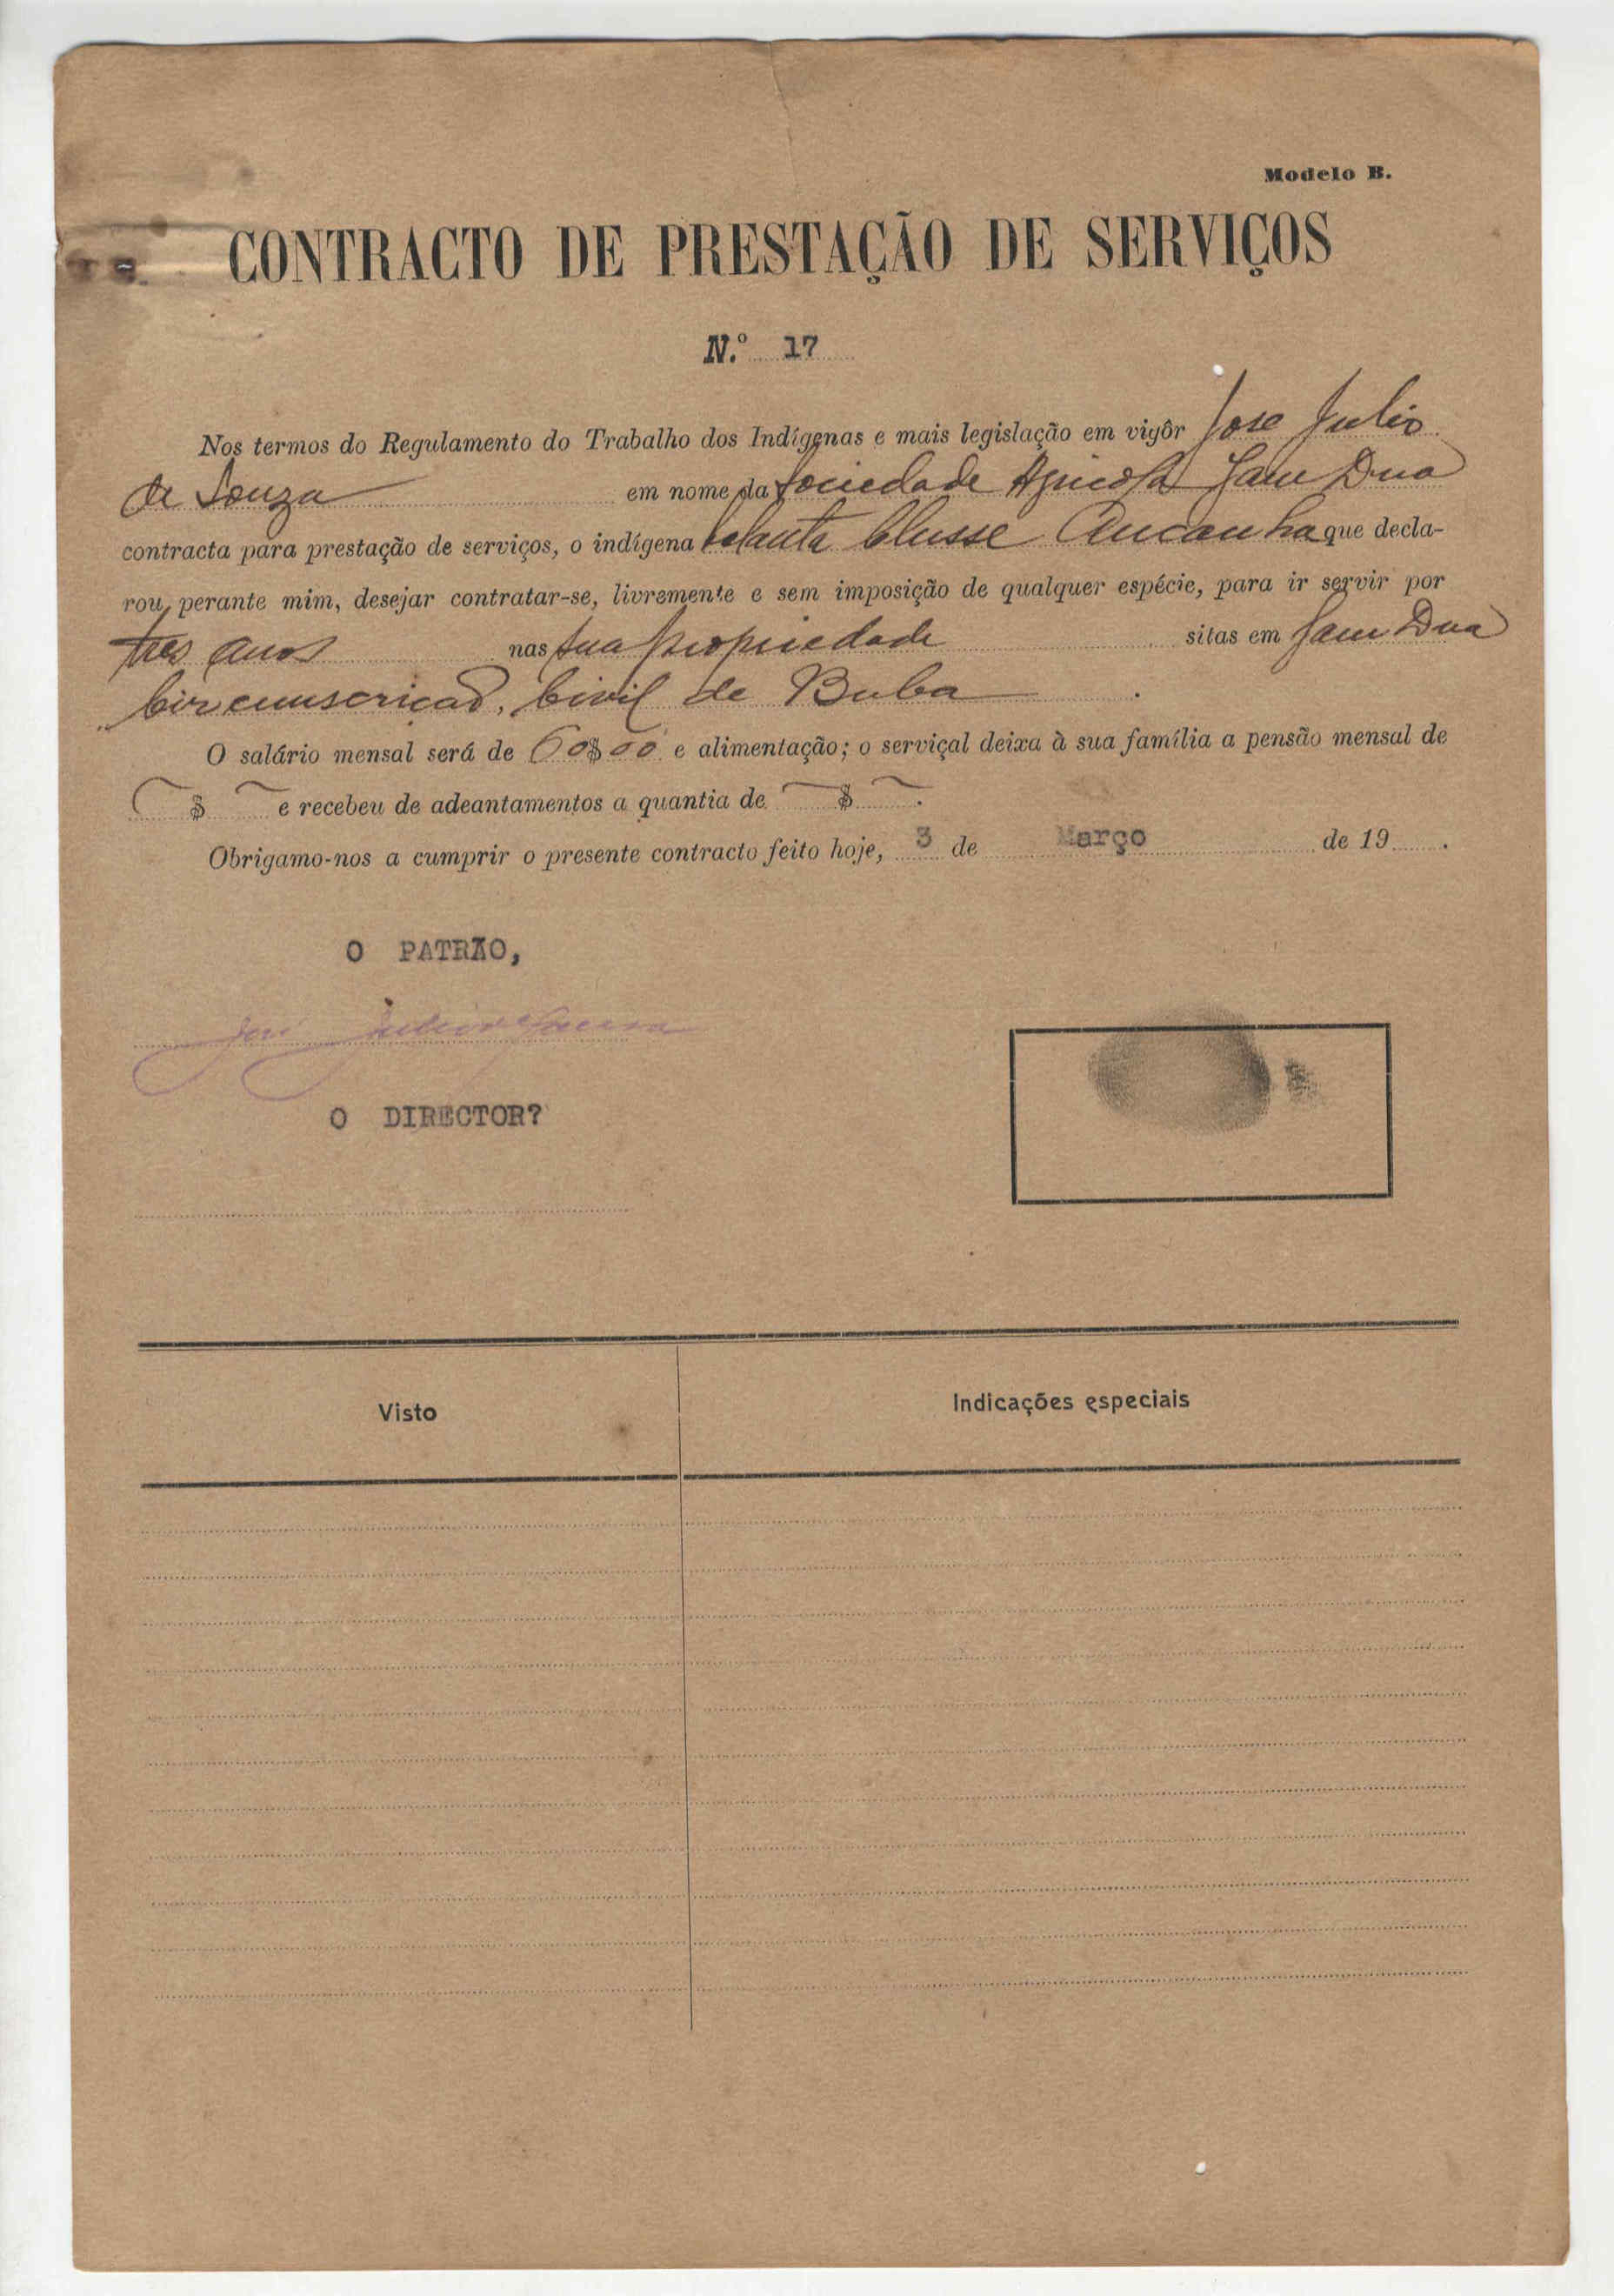 Modelo B.
CONTRACTO DE PRESTAÇÃO DE SERVIÇOS
N.º 17
Nos termos do Regulamento do Trabalho dos Indígenas e mais legislação em vigôr Jose Julio
de Souza em nome da Sociedade Agricola Jam Dua
contracta para prestação de serviços, o indígena que decla-
rou, perante mim, desejar contratar-se, livremente e sem imposição de qualquer espécie, para ir servir por
tres anos nas sua propriedade sitas em Jam Dua
Circumscrição, Civil de Buba
O salário mensal será de 60$00 e alimentação; o serviçal deixa à sua família a pensão mensal de
$ e recebeu de adeantamentos a quantia de $ .
Obrigamo-nos a cumprir o presente contracto feito hoje, 3 de Março de 19 .
O PATRÃO,
José Julio Souza
O DIRECTOR?
Visto
Indicações especiais